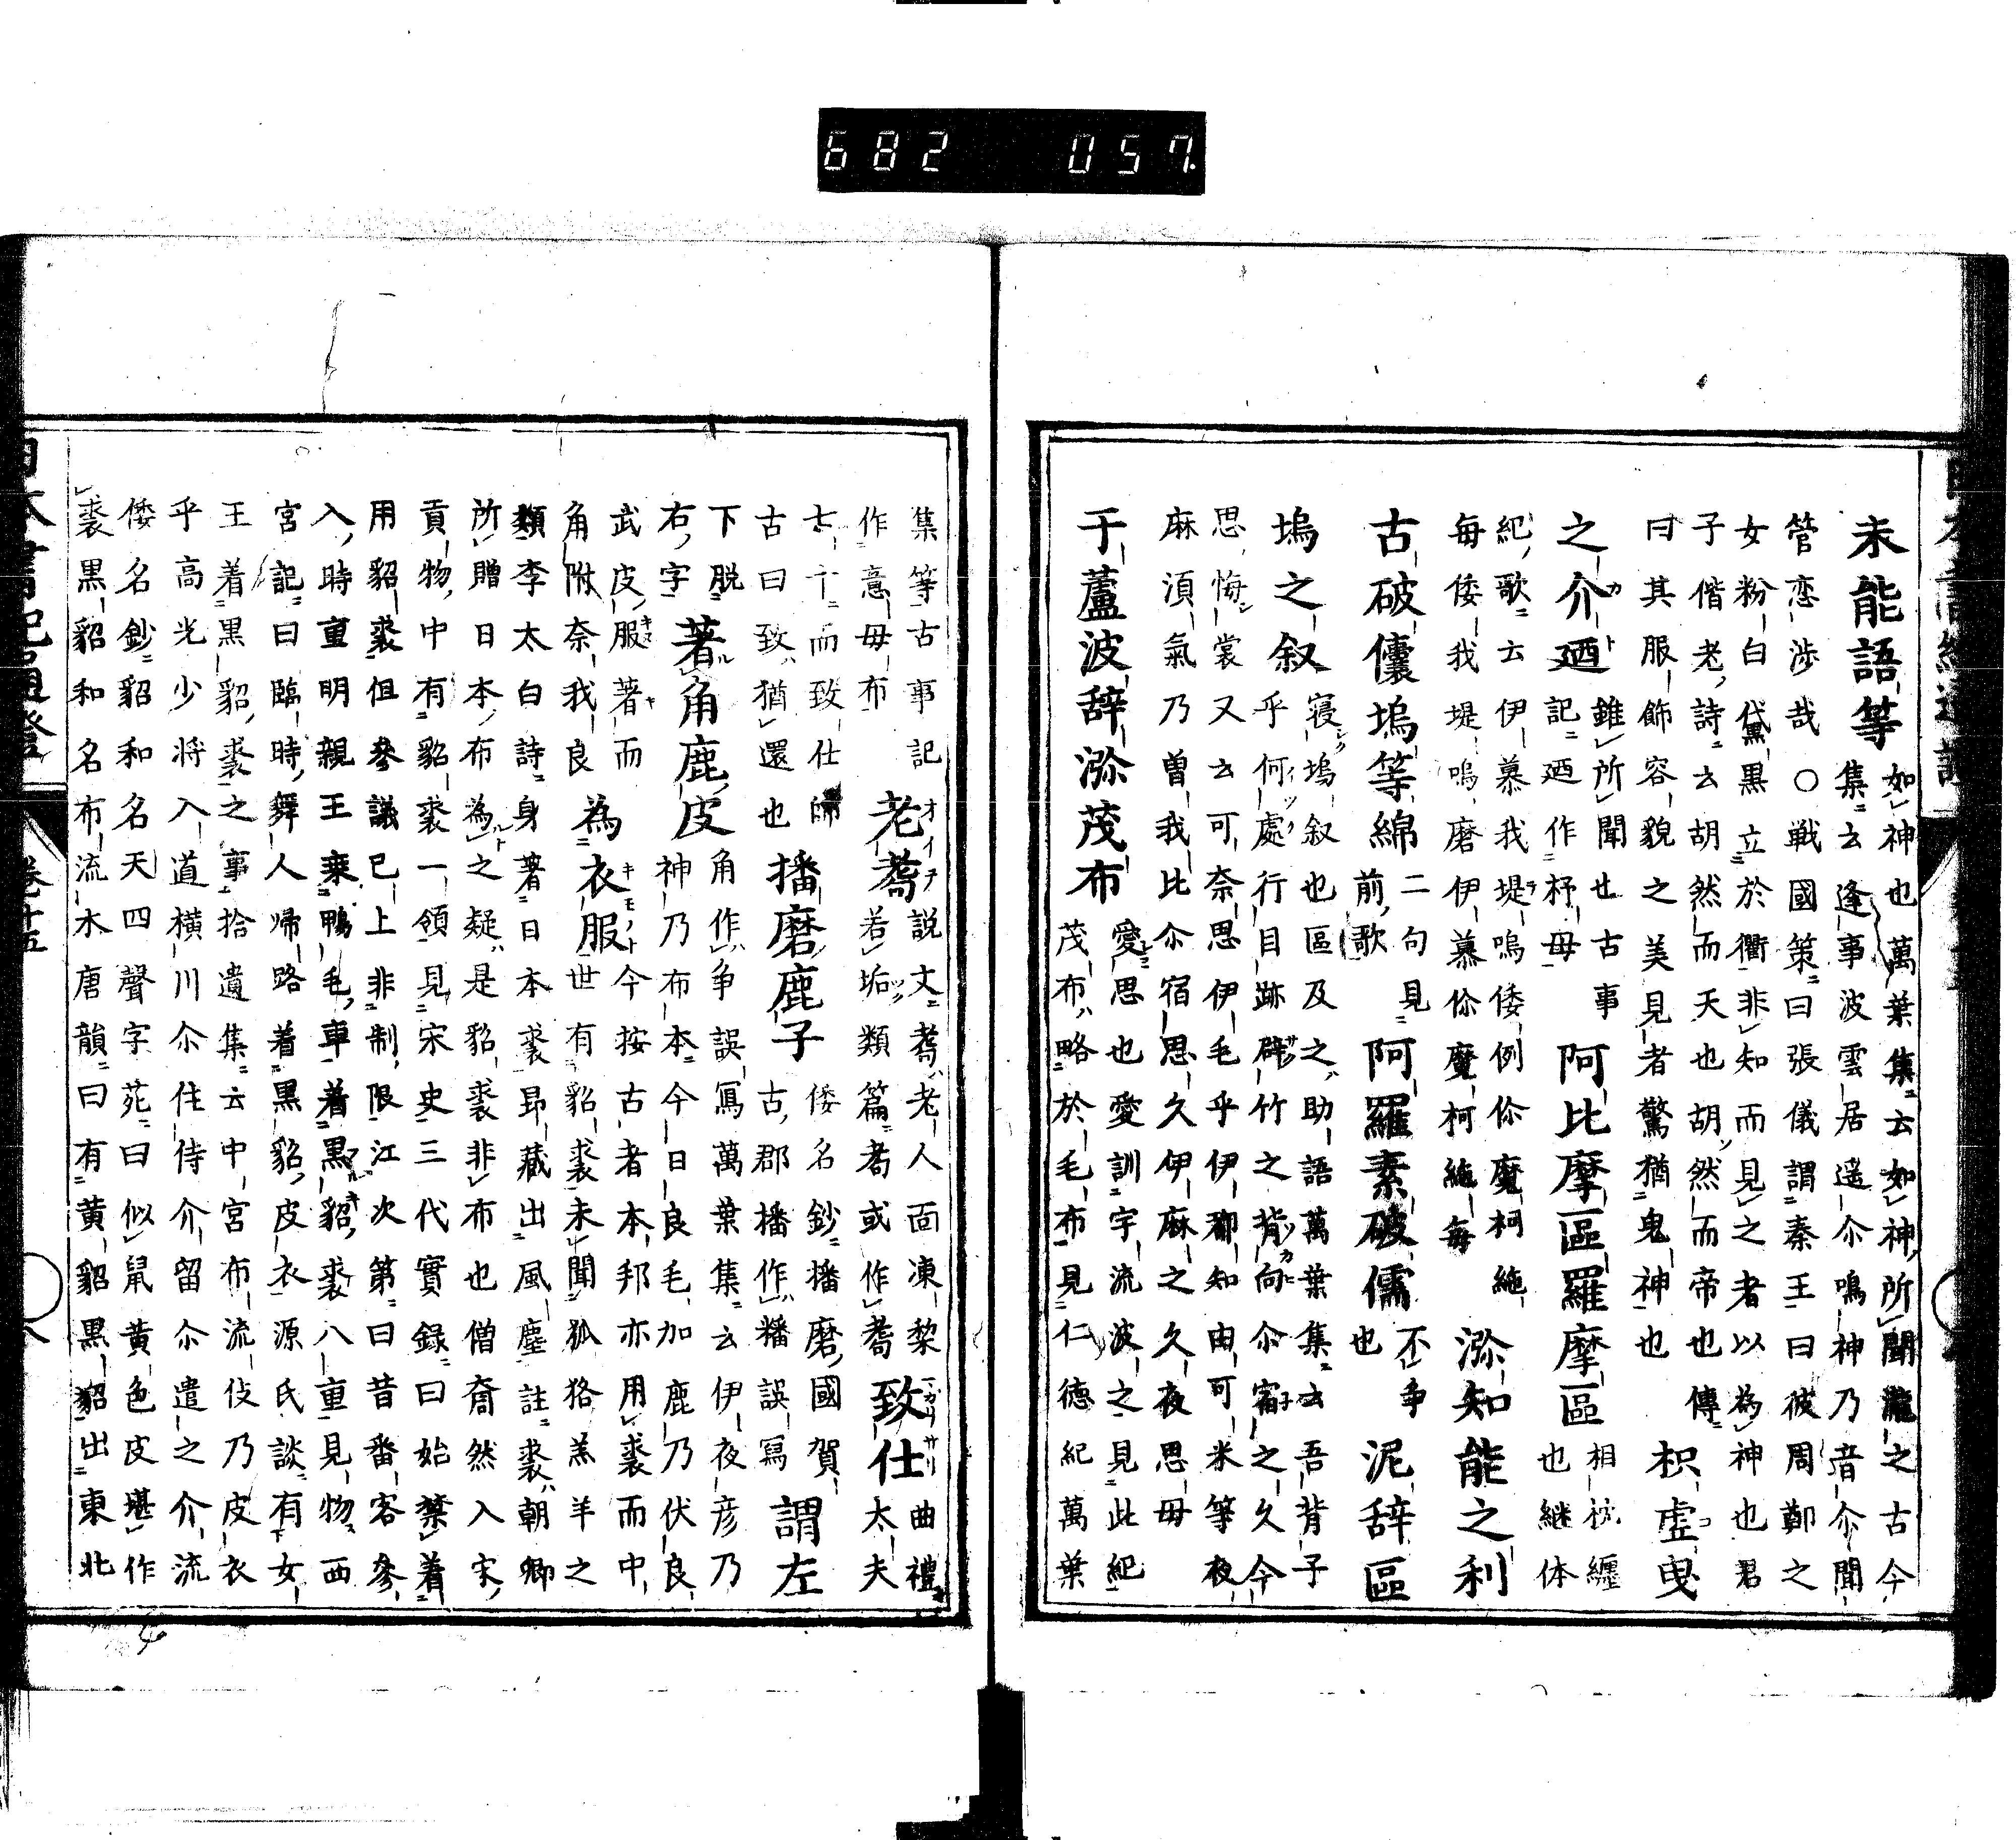 未能語等
如神也萬葉集云如神所聞瀧之古今
集云逢事波雲居遥尒鳴神乃音尒聞
管恋渉哉○戦國策曰張儀謂秦王曰彼周鄭之
女粉白黛黒立於衢非知而見之者以為神也君
子偕老詩云胡然而天也胡然而帝也傳
曰其服飾容貌之美見者驚猶鬼神也
枳虚曳
之介廼
錐所聞也古事
記廼作杼母
阿比摩區羅摩區
相枕纏
也継体
紀歌云伊慕我堤嗚倭例伱魔柯絁
每倭我堤嗚磨伊慕伱魔柯絁每
泑知能之利
古破儾塢等綿
二句見
前歌
阿羅素破儒
不争
也
泥辞區
塢之叙
寝塢叙也區及之助語萬葉集云吾背子
乎何處行目跡辟竹之背向尒宿之久今
思悔裳又云可奈思伊毛乎伊都知由可米等夜
麻湏氣乃曽我比尒宿思久伊麻之久夜思母
于蘆波辞泑茂布
愛思也愛訓宇流波之見此紀
茂布略於毛布見仁德紀萬葉
集等古事記
作意母布
老耇
説文耇老人面凍梨
若垢類篇耇或作耇
致仕
曲禮
大夫
七十而致仕師
古曰致猶還也
播磨鹿子
倭名鈔播磨國賀
古郡播作糌誤寫
謂左
下脱
右字
著角鹿皮
角作争誤寫萬葉集云伊夜彦乃
神乃布本今日良毛加鹿乃伏良
武皮服著而
角附奈我良
為衣服
今按古者本邦亦用裘而中
世有貂裘未聞狐狢羔羊之
類李太白詩身著日本裘昂藏出風塵註裘朝卿
所贈日本布為之疑是貂裘非布也僧奝然入宋
貢物中有貂裘一領見宋史三代實録曰始禁着
用貂裘但參議已上非制限江次第曰昔番客參
入時重明親王乗鴨毛車着黒貂裘八重見物西
宮記曰臨時舞人帰路着黒貂皮衣源氏談有女
王着黒貂裘之事拾遺集云中宮布流伎乃皮衣
乎高光少将入道横川尒住侍介留尒遣之介流
倭名鈔貂和名天四聲字苑曰似鼠黄色皮堪作
裘黒貂和名布流木唐韻曰有黄貂黒貂出東北
日本書紀通證
卷十五
八
682 057